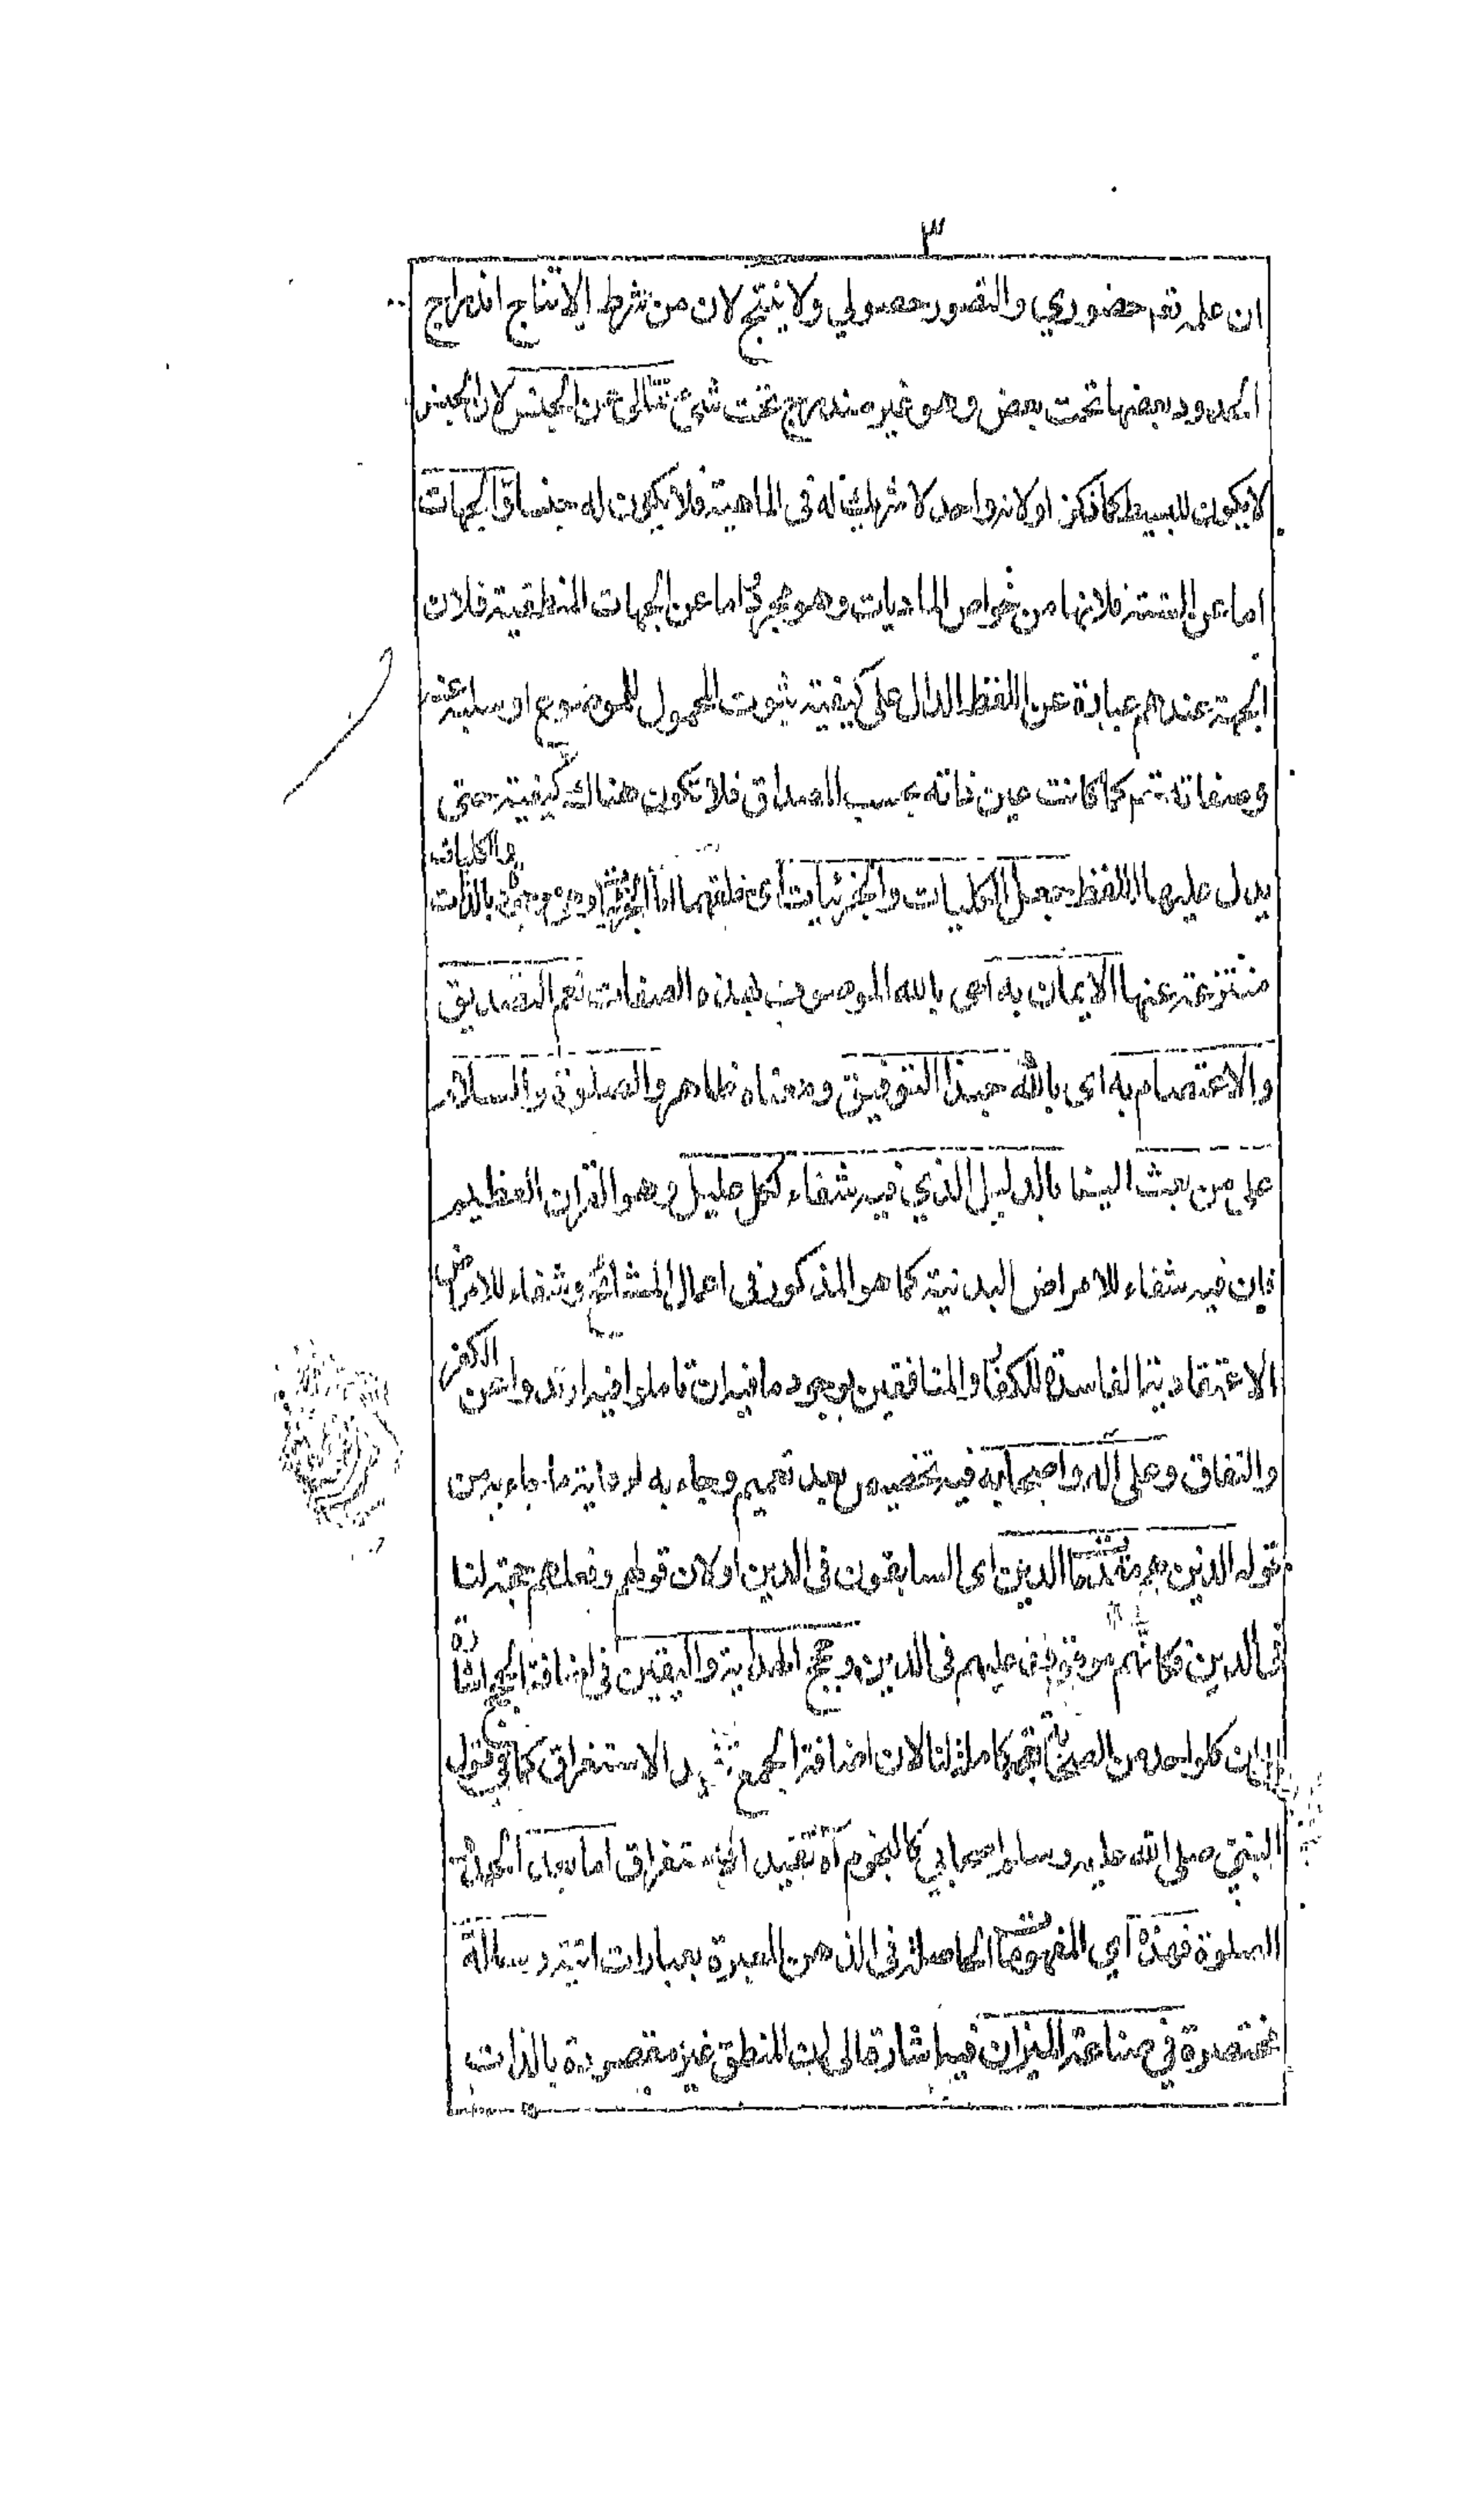 ٣
ان علمه تعم حضوري والتصور حصولي ولا ينتج لان من شرط الانتاج اندراج
الحدود بعضها تحت بعض وهو غير مندرج تحت شئ تعالى عن الجنس لان الجنس
لا يكون للبسيط كما ذكر او لانه واحد لا شريك له فى الماهية فلا يكون له جنسا والجهات
اما عن الستة فلانها من خواص الماديات وهو مجرد اما عن الجهات المنطقية فلان
الجهة عندهم عبارة عن اللفظ الدال على كيفية ثبوت المحمول للموضوع او سلبه عنه
وصفاته تعم كما كانت عين ذاته بحسب المصداق فلا تكون هناك كيفية حتى
يدل عليها اللفظ جعل الكليات والجزئيات اى خلقهما اما الجزئيات بالذات
والكليات
منتزعة عنها الايمان به اى بالله الموصوف بهذه الصفات نعم التصديق
والاعتصام به اى بالله حبذا التوفيق ومعناه ظاهر والصلوة والسلام
على من بعث الينا بالدليل الذي فيه شفاء لكل عليل وهو القران العظيم
فان فيه شفاء للامراض البدنية كما هو المذكور فى اعمال المشائخ وشفاء للامراض
الاعتقادية الفاسدة للكفار والمنافقين بوجود ما فيه ان تاملوا فيه ارتدوا عن الكفر
والنفاق وعلى آله واصحابه فيه تخصيص بعد تعميم وجاء به لرعاية ما جاء به من
قوله الذين هم مقدما الدين اى السابقون فى الدين او لان قولهم وفعلهم حجة لنا
فى الدين فكانهم موقوف عليهم فى الدين وحجج الهداية واليقين فى اضافة الحجج اشارة
الى ان كل واحد من الصحابة كاملة لنا لان اضافة الجمع تفيد الاستغراق كما فى قول
النبي صلى الله عليه وسلم اصحابي كالنجوم آه تفيد الاستغراق اما بعد الحمد و
الصلوة فهذه اي المفهومات الحاصلة فى الذهن المعبرة بعبارات اتية رسالة
مختصرة في صناعة الميزان فيه اشارة الى ان المنطق غير مقصودة بالذات